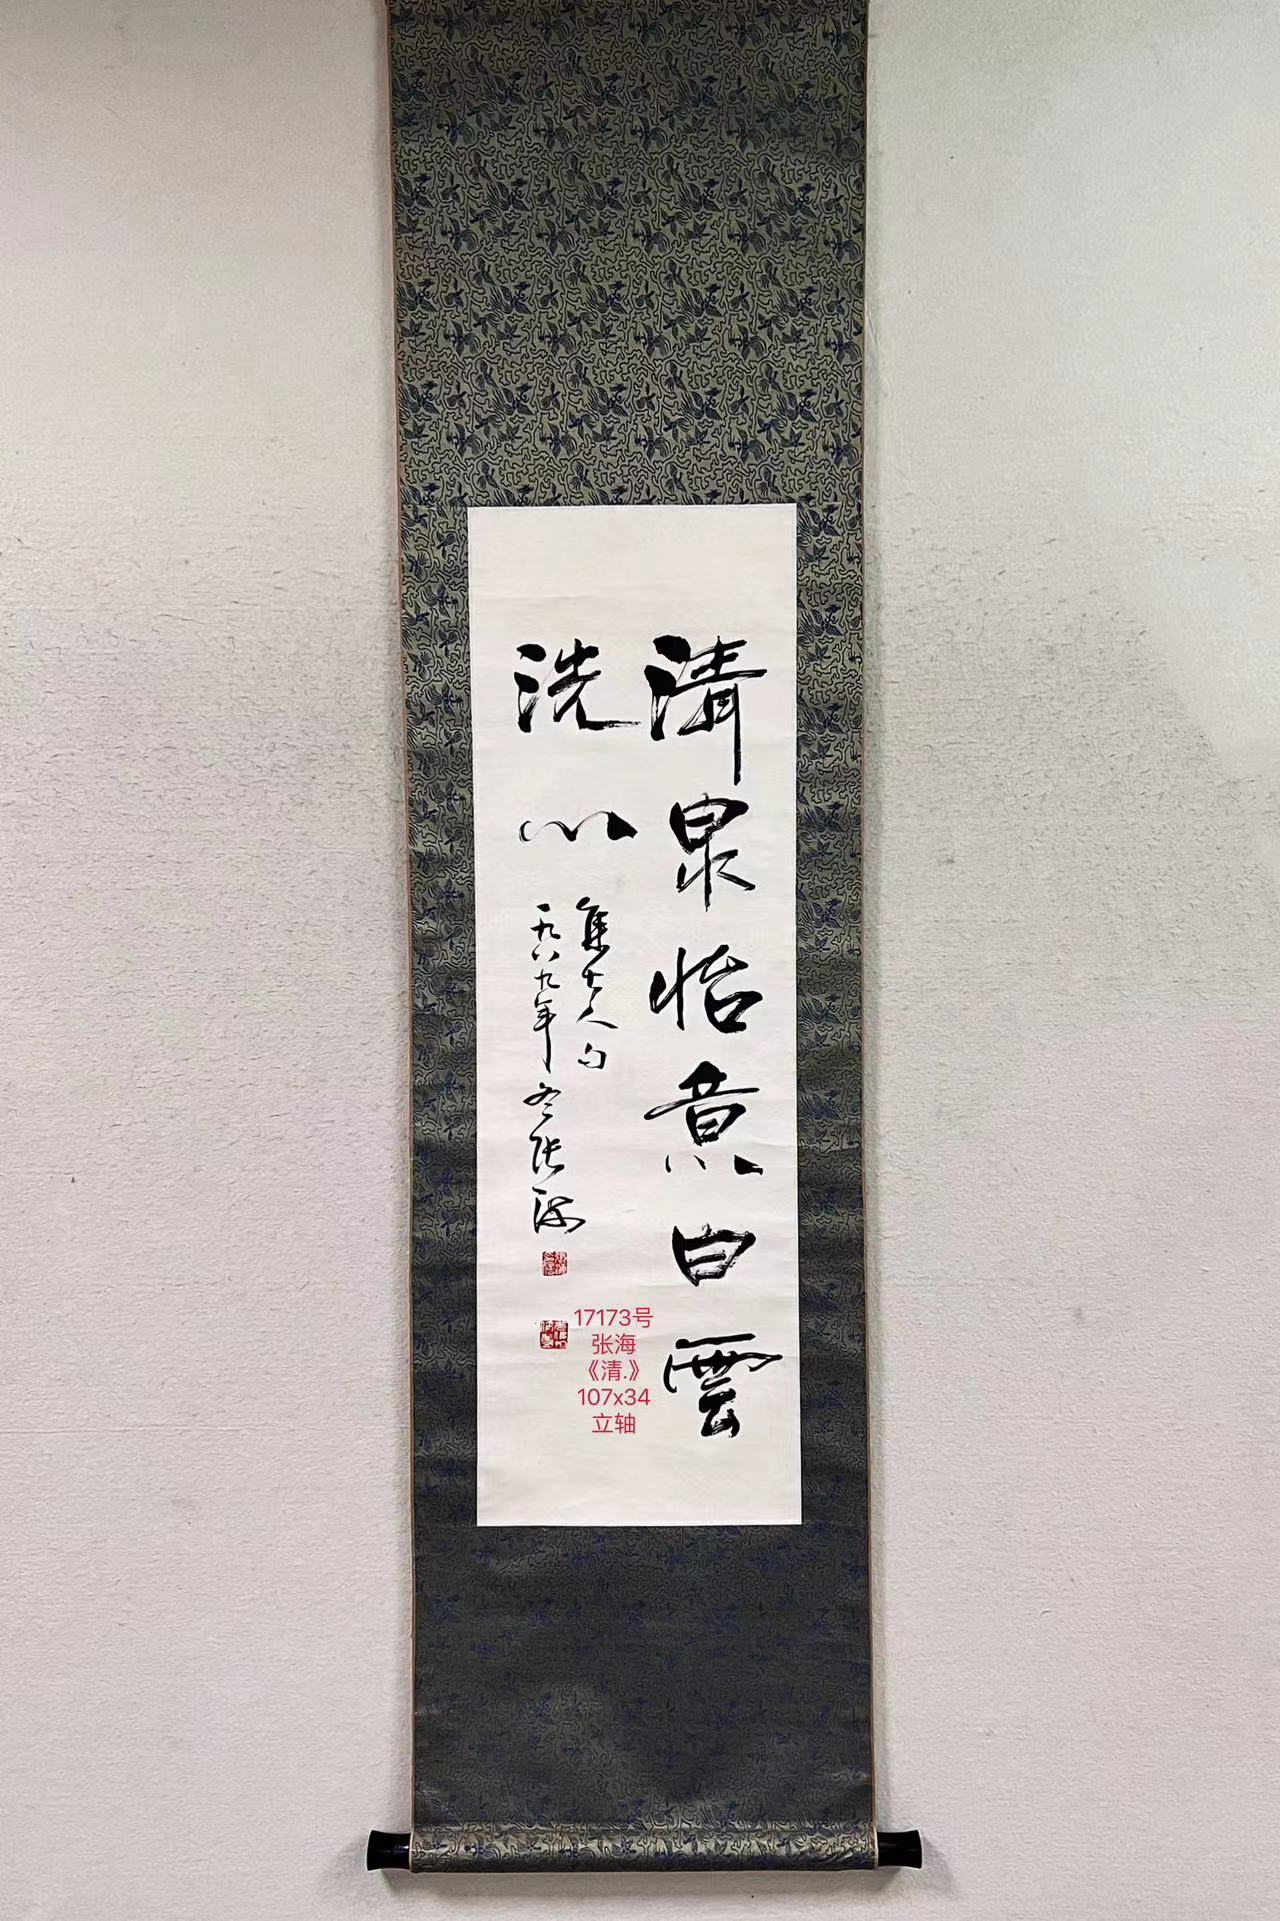 清泉怡意白雲
洗心
集古人句
一九八九年冬张海
17173号
张海
《清.》
107x34
立轴